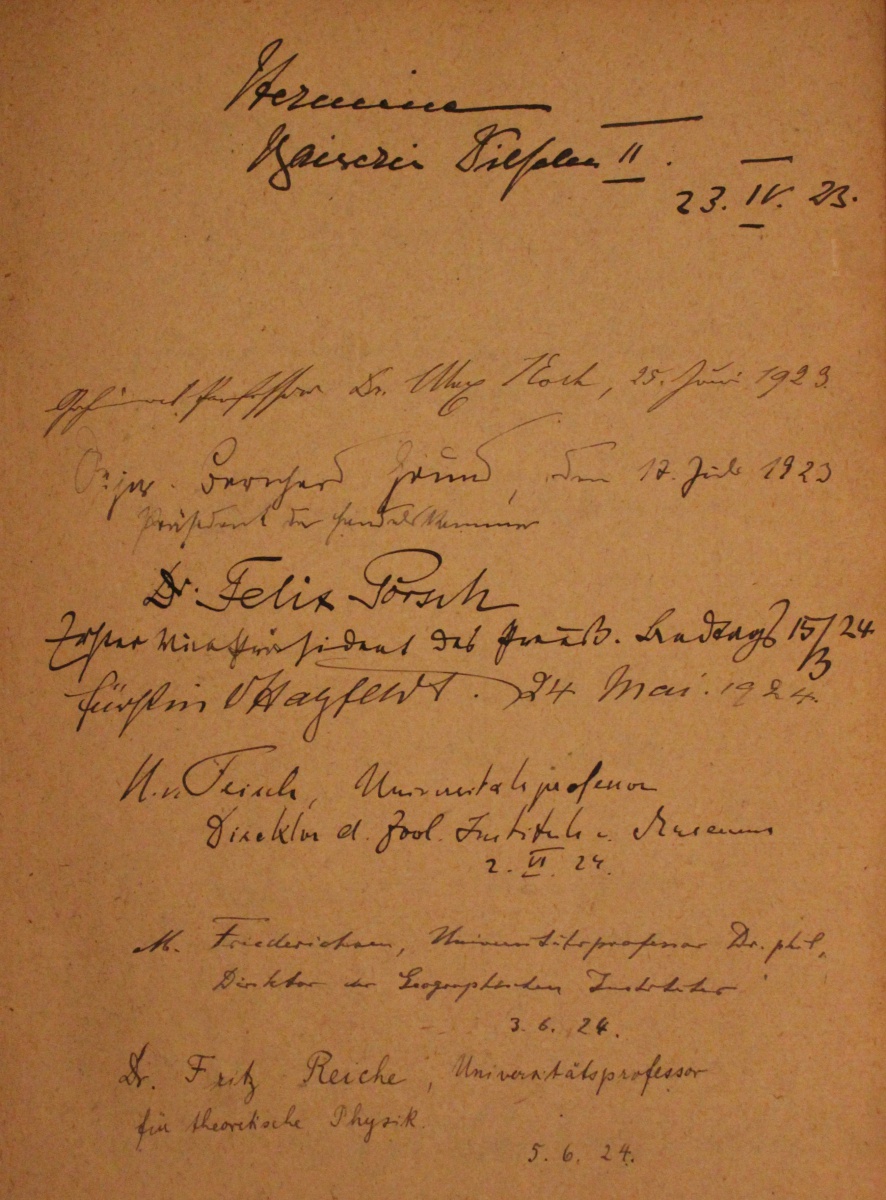 Hermine
Kaiserin Wilhelm II.
23. IV. 23.
Professor Dr. Max Koch, 25. Juni 1923
Dr. jur. Bernhard Grund, den 17. Juli 1923
Präsident der Handelskammer
Dr. Felix Porsch
Erster Vicepräsident des Preuß. Landtags 15/3 24
Fürstin v Hatzfeldt. 24 Mai. 1924.
v. Frisch, Universitätsprofessor
Direktor d. Zool. Instituts u. Museums
2. VI. 24.
M. Friederichsen, Universitätsprofessor Dr. phil,
Direktor des Geographischen Institutes
3. 6. 24.
Dr. Fritz Reiche, Universitätsprofessor
für theoretische Physik.
5. 6. 24.